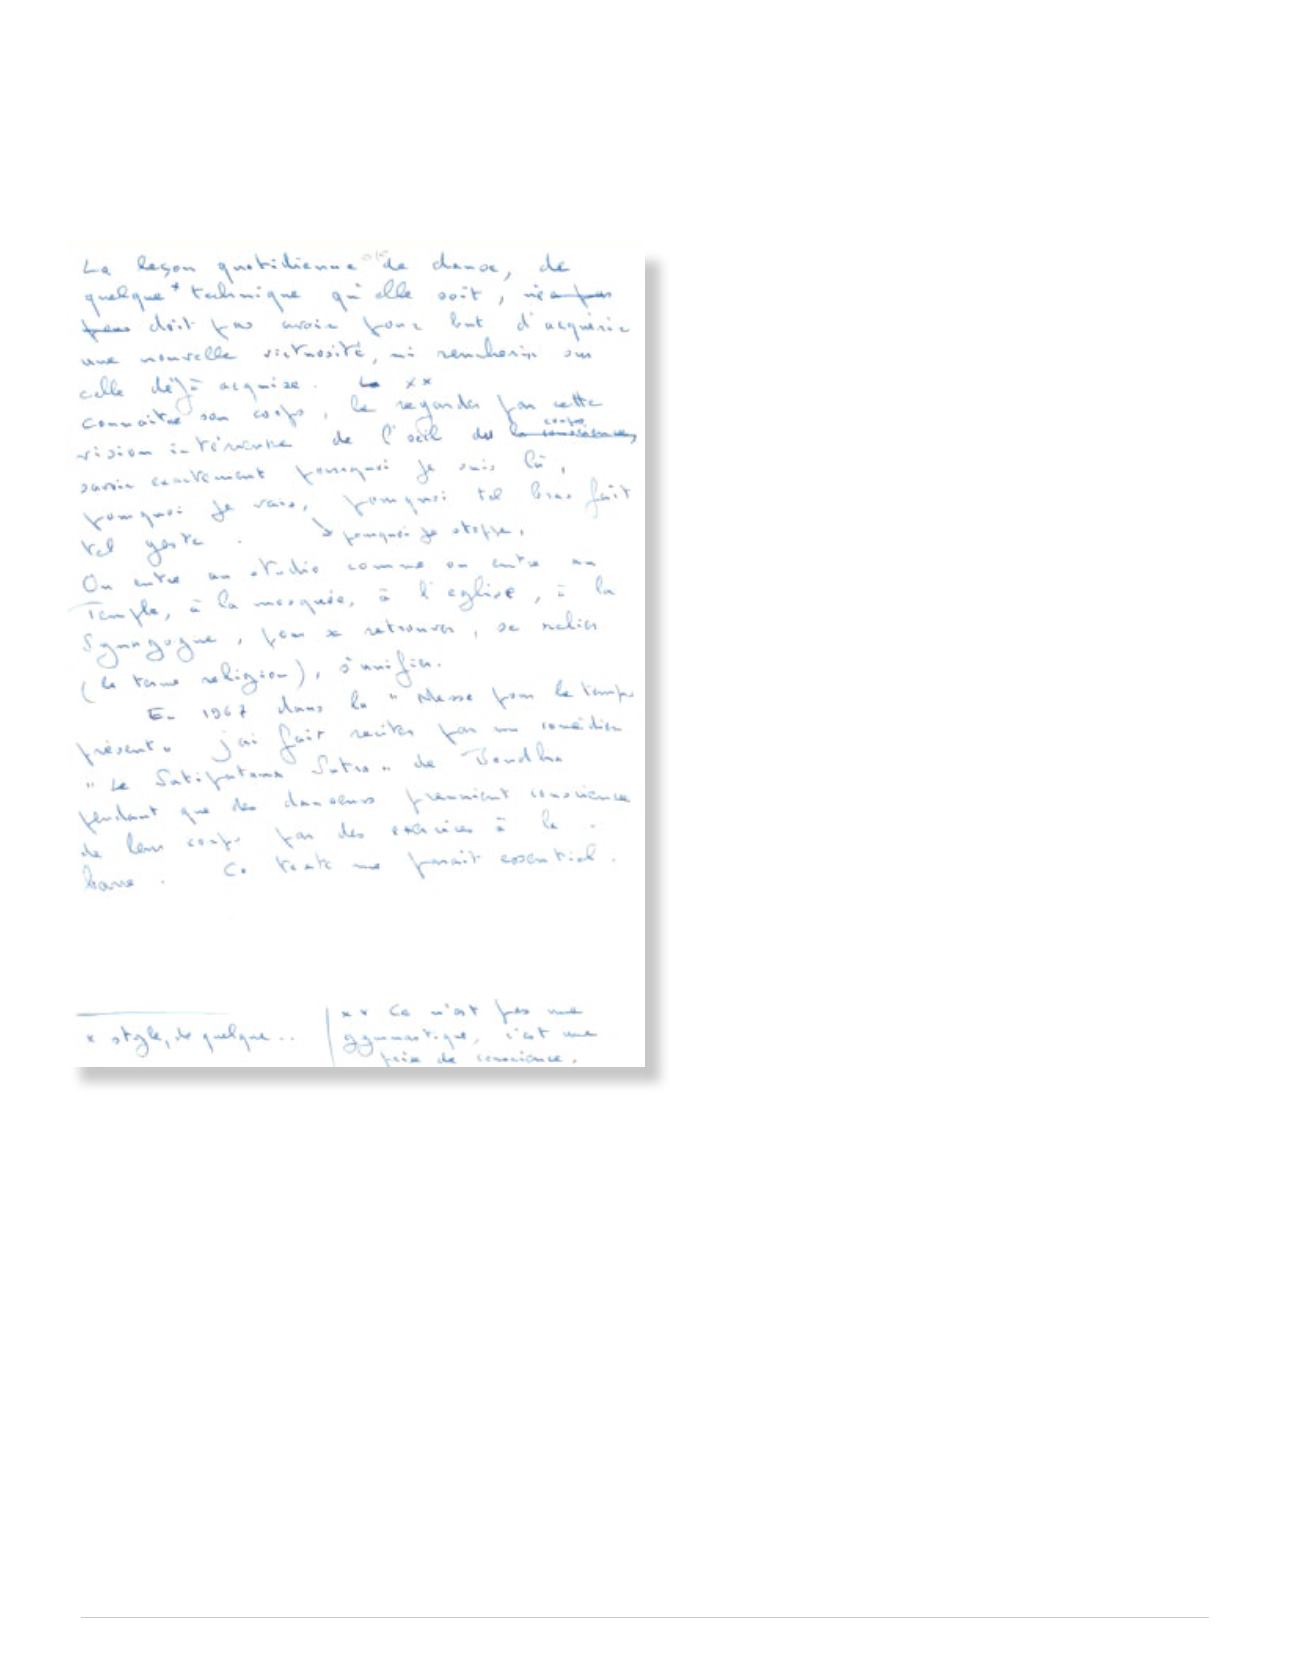 La leçon quotidienne de danse, de
quelque * technique qu'elle soit, n'a pas
pas doit pas avoir pour but d'acquérir
une nouvelle virtuosité, ni renchérir sur
celle déjà acquise. La xx
connaitre son corps, le regarder par cette
vision intérieure de l'oeil du corps la conscience,
savoir exactement pourquoi je suis là,
pourquoi je vais, pourquoi tel bras fait
tel geste. ↘ pourquoi je stoppe,
On entre au studio comme on entre au
Temple, à la mosquée, à l'eglise, à la
Synagogue, pour se retrouver, se relier
(le terme religion), s'unifier.
En 1967 dans la "Messe pour le temps
présent" j'ai fait reciter par un comédien
"Le Satipatana Sutra" de Boudha
pendant que des danseurs prennaient conscience
de leur corps par des exercices à la
barre. Ce texte me parait essentiel.
x style, de quelque...
xx Ce n'est pas une
gymnastique, c'est une
prise de conscience.